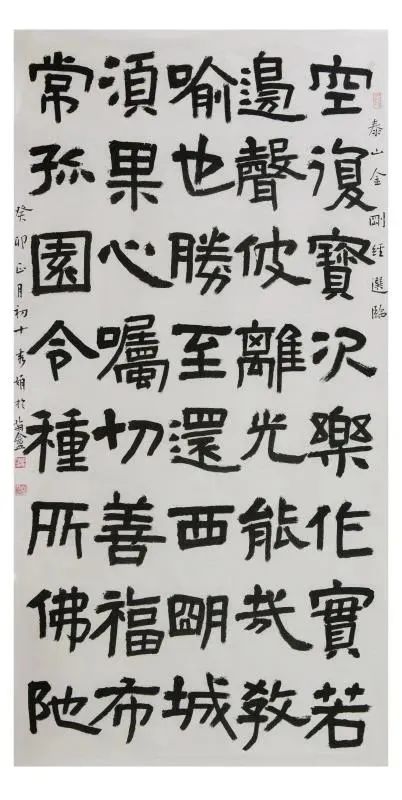 泰山金剛經選臨
空復寶次樂作實若
邊聲彼離光能哉教
喻也勝至還西明城
須果心囑切善福布
常孤園令種所佛陀
癸卯正月初十秀娟於